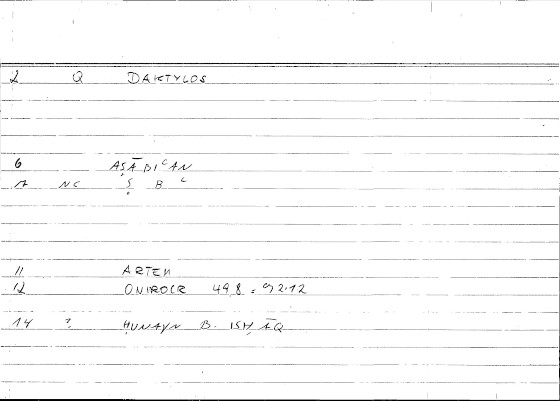 2 Q DAKTYLOS
6 AṢĀBIʿAN
A NC Ṣ B ʿ
11 ARTEM
12 ONIROCR 49,8 = 92.12
14 ? ḤUNAYN B. ISḤĀQ